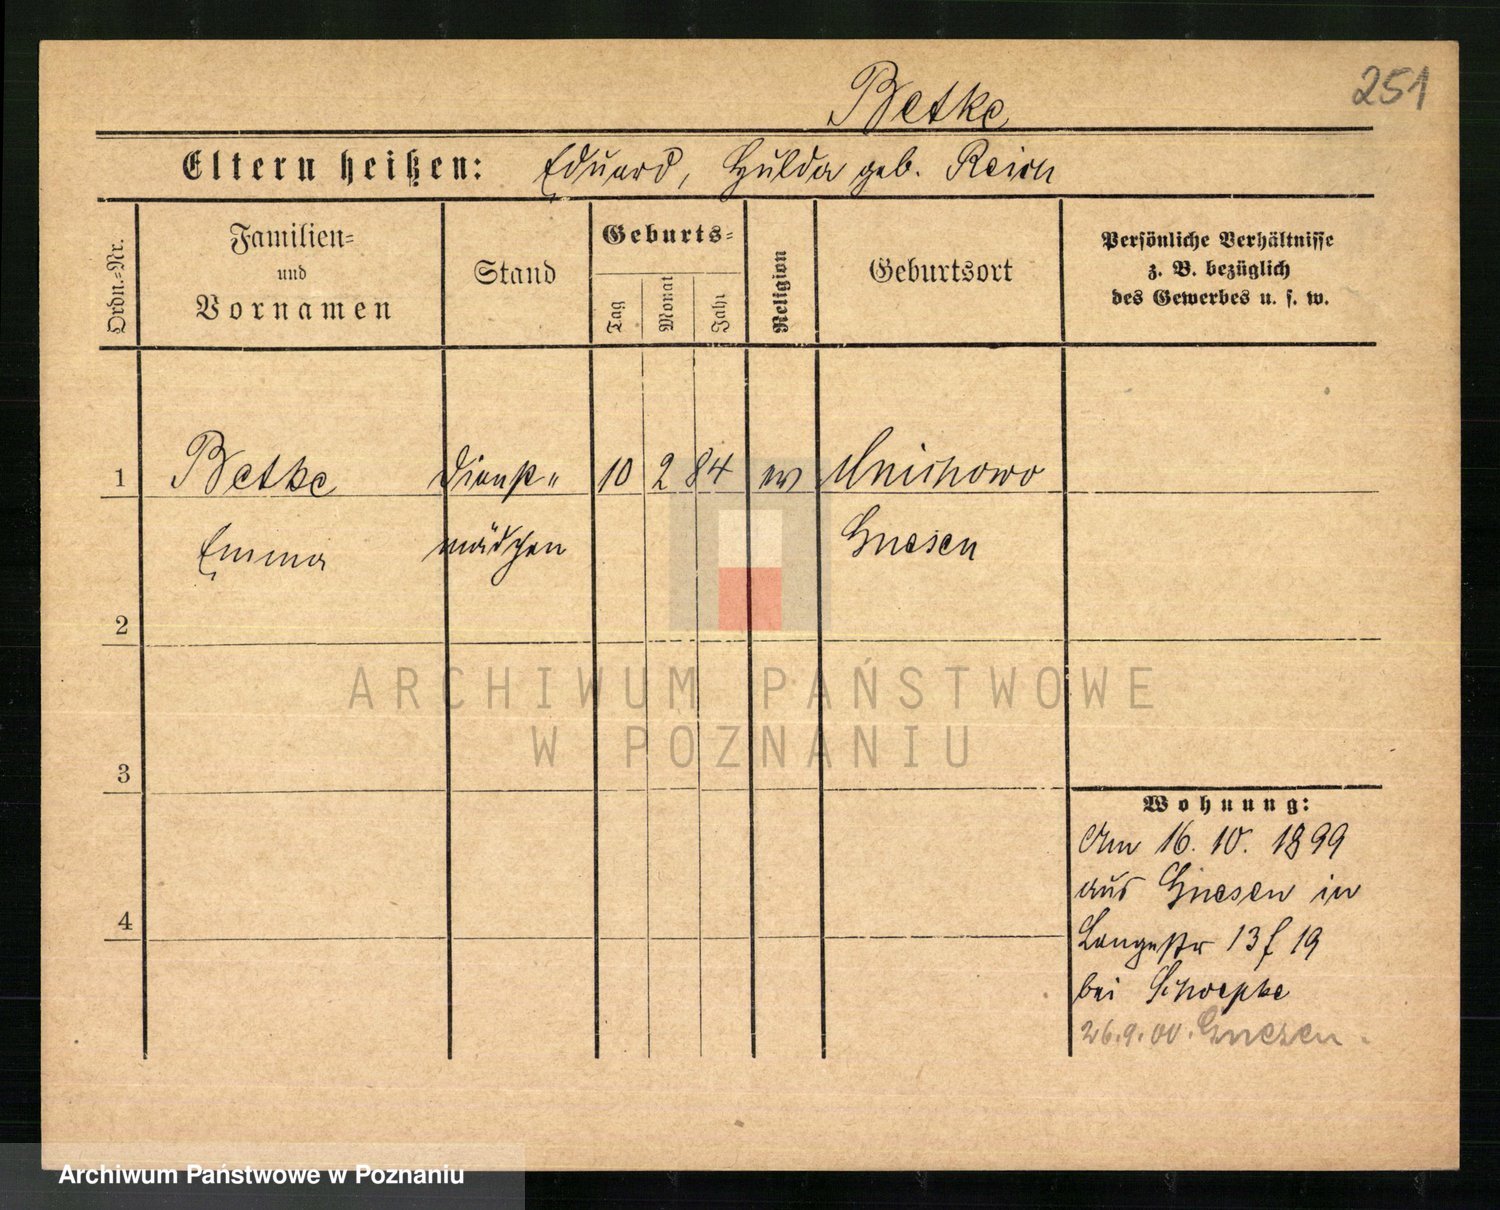 251
Betke
Eltern heißen: Eduard, Hulda geb. Reich
Ordn.-Nr.
Familien-
und
Vornamen
Stand
Geburts-
Tag
Monat
Jahr
Religion
Geburtsort
Persönliche Verhältnisse
z. B. bezüglich
des Gewerbes u. s. w.
1 Betke Dienst- 10 2 84 ev Mnichowo
Emma mädchen Gnesen
2
ARCHIWUM PAŃSTWOWE
W POZNANIU
3
Wohnung:
Am 16. 10. 1899
aus Gnesen in
4
Langestr 13 f 19
bei Schoepke
26.9.00. Gnesen.
Archiwum Państwowe w Poznaniu